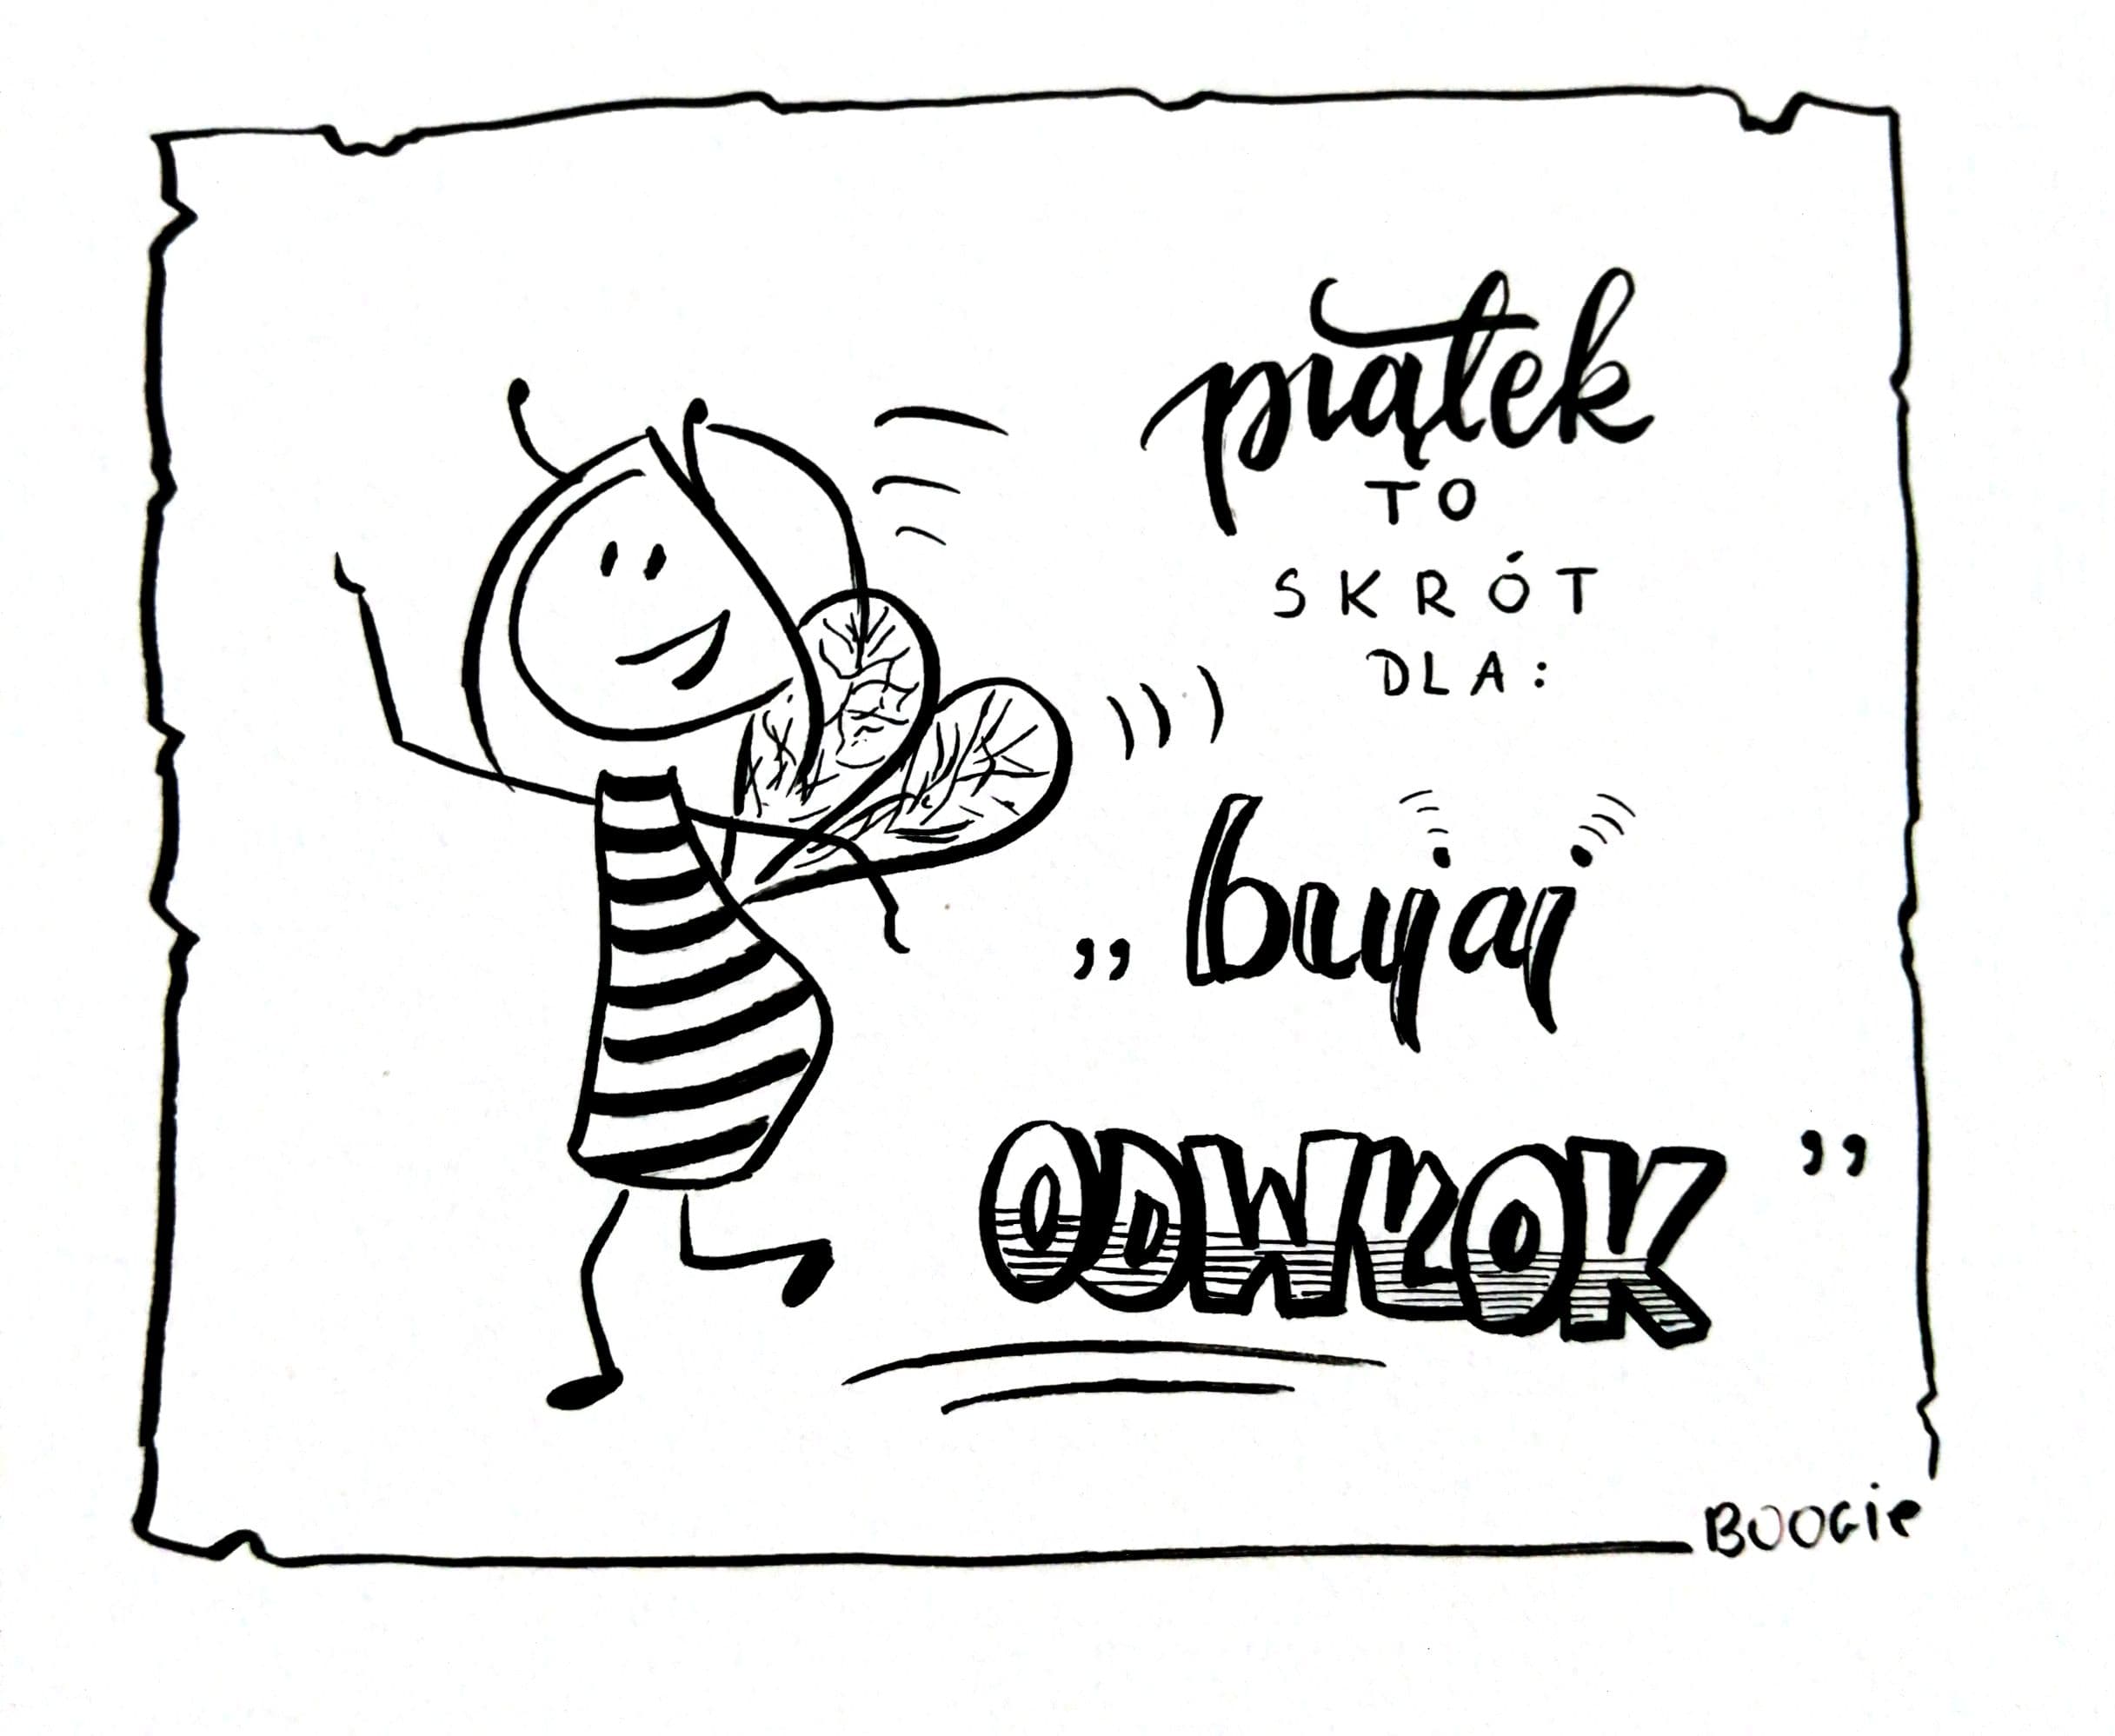 piątek
TO
SKRÓT
DLA:
„bujaj
ODWŁOK”
BOOGie